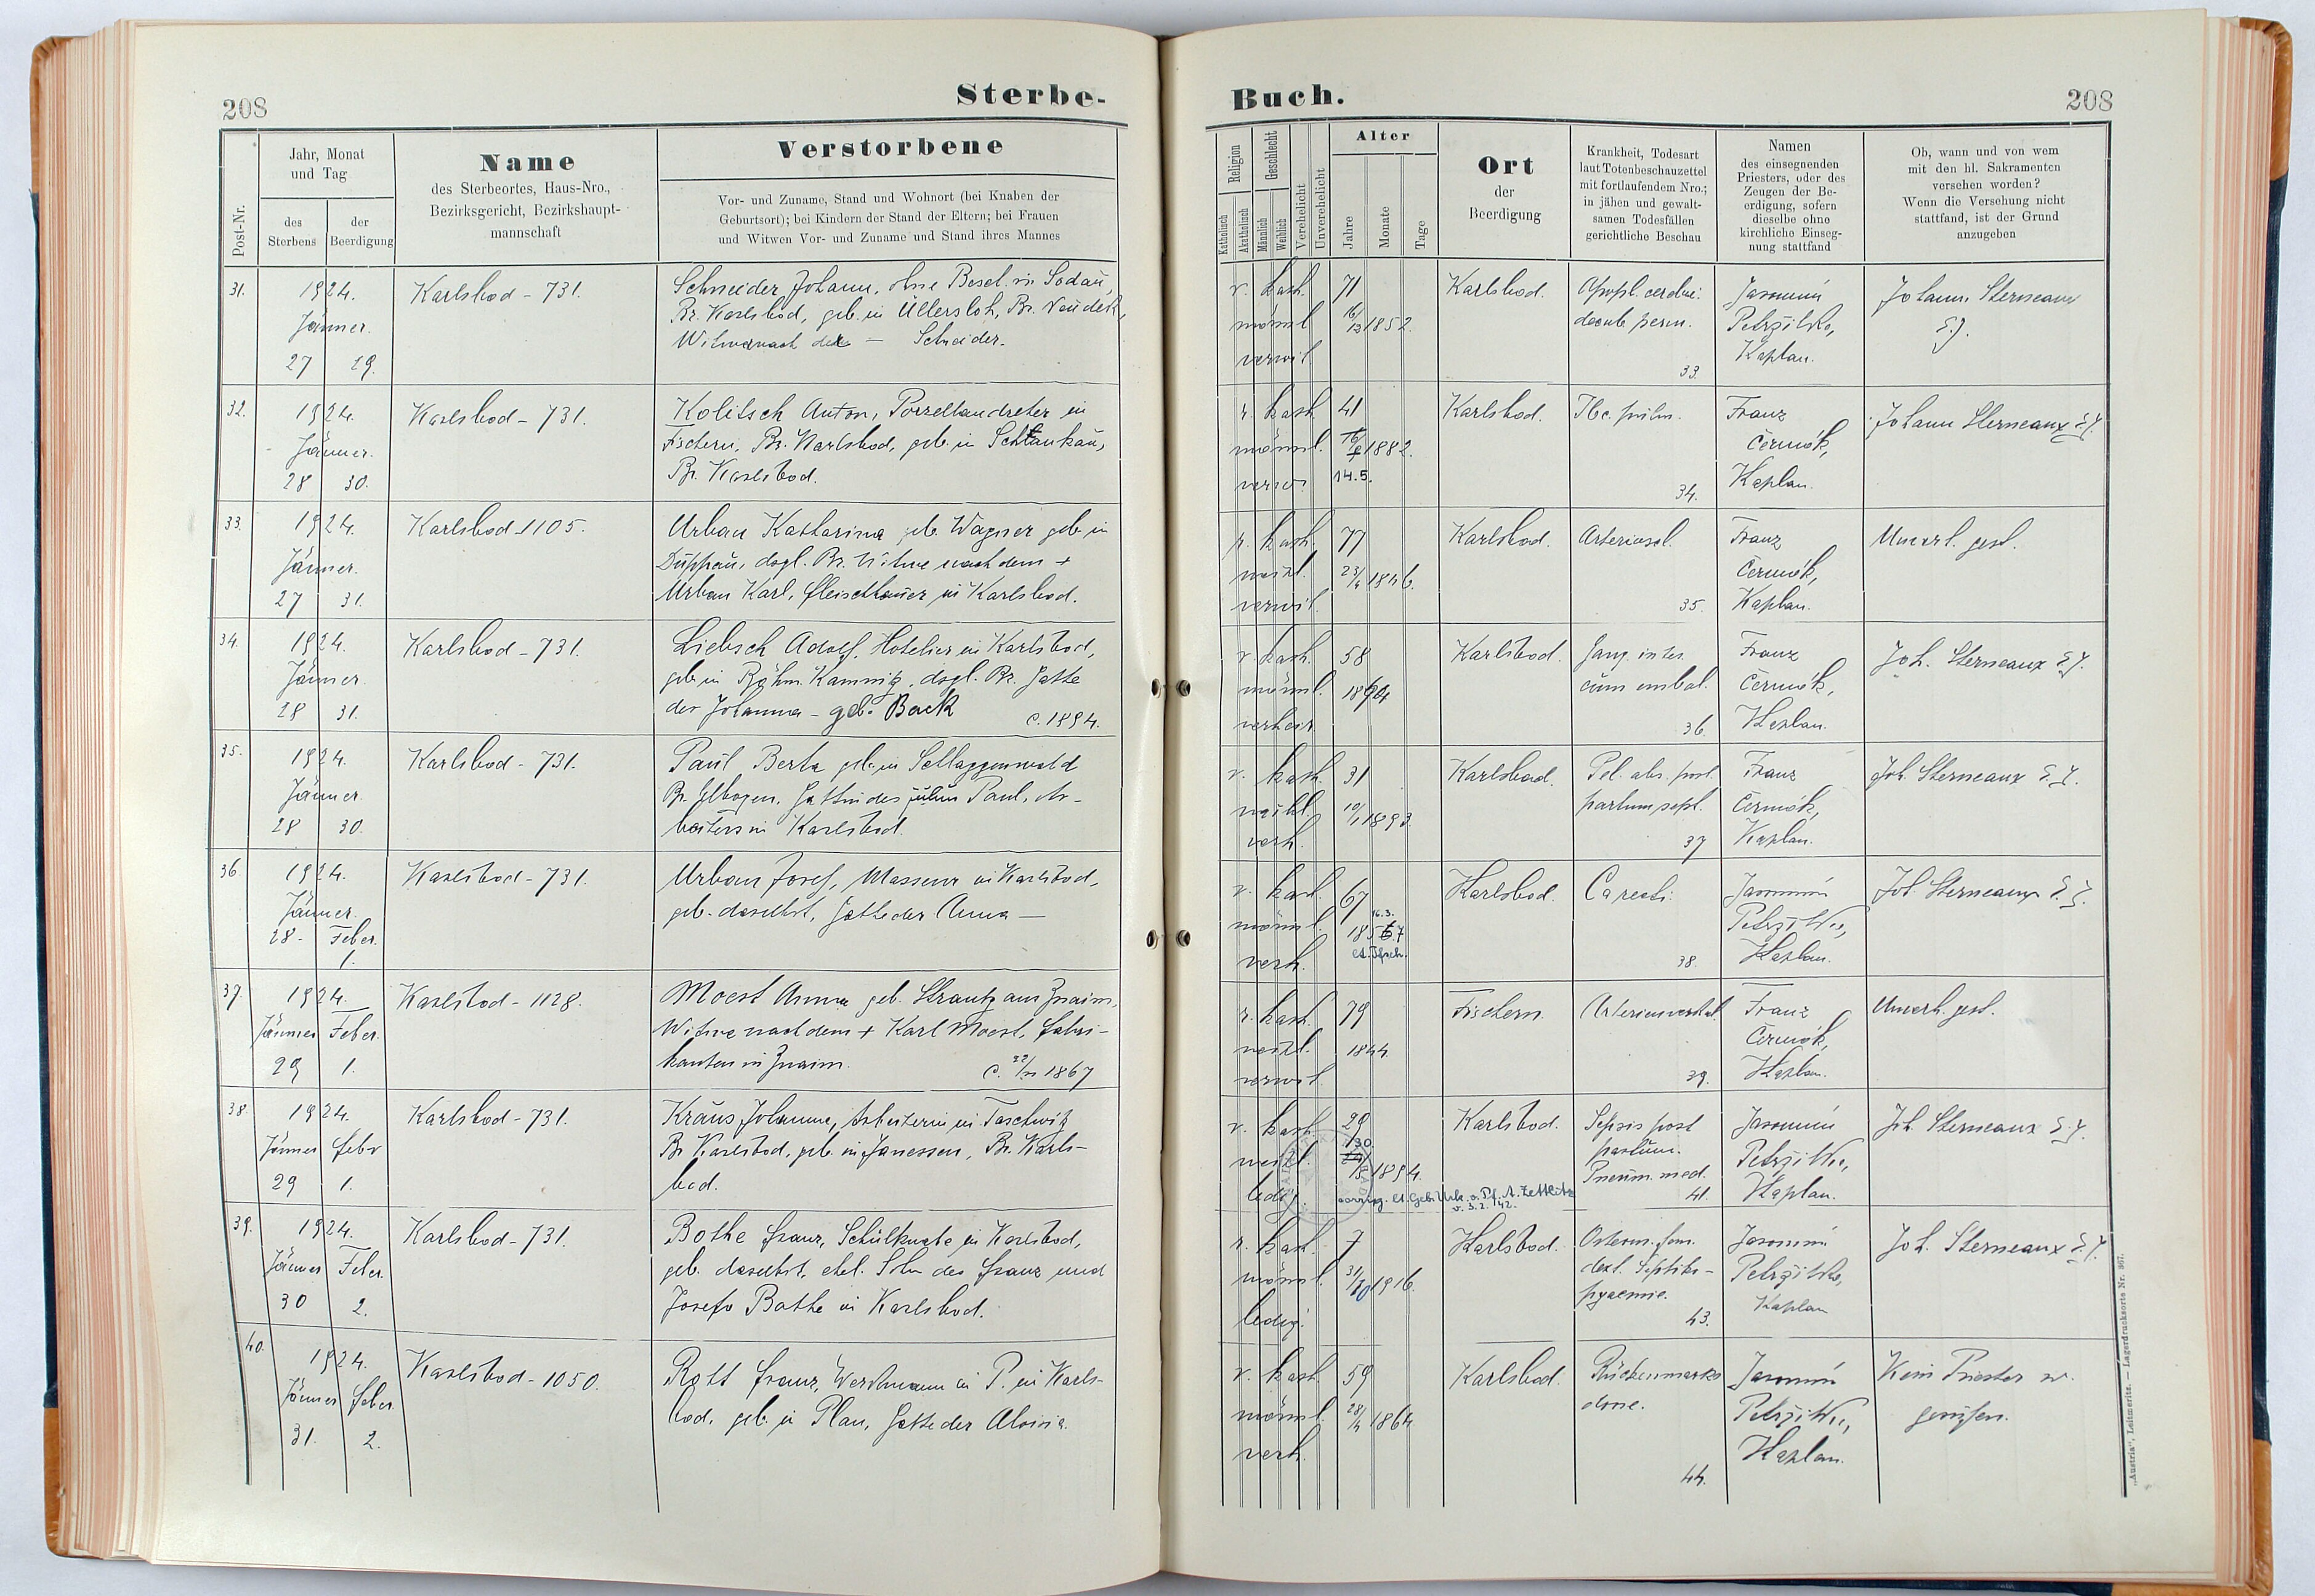 208
Sterbe-
Post-Nr.
Jahr, Monat
und Tag
des
Sterbens
der
Beerdigung
Name
des Sterbeortes, Haus-Nro.,
Bezirksgericht, Bezirkshaupt-
mannschaft
Verstorbene
Vor- und Zuname, Stand und Wohnort (bei Knaben der
Geburtsort); bei Kindern der Stand der Eltern; bei Frauen
und Witwen Vor- und Zuname und Stand ihres Mannes
31.
1924.
Jänner.
27 29.
Karlsbad - 731.
Schneider Johann, ohne Besch. in Sodau,
Bz. Karlsbad, geb. in Üllersloh, Bz. Neudek,
Witwer nach der — Schneider.
32.
1924.
Jänner.
28 30.
Karlsbad - 731.
Kolitsch Anton, Porzellandreher in
Fischern, Bz. Karlsbad, geb. in Schlankau,
Bz. Karlsbad.
33.
1924.
Jänner.
27 31.
Karlsbad 1105.
Urban Katharina geb. Wagner geb. in
Duppau, dsgl. Bz. Witwe nach dem +
Urban Karl, Fleischhauer in Karlsbad.
34.
1924.
Jänner
28 31.
Karlsbad - 731.
Liebsch Adolf, Hotelier in Karlsbad,
geb. in Böhm. Kamnitz, dsgl. Bz. Gatte
der Johanna - geb. Back
c. 1894.
35.
1924.
Jänner
28 30.
Karlsbad - 731.
Paul Berta geb. in Schlaggenwald
Bz. Elbogen, Gattin des Julius Paul, Ar-
beiters in Karlsbad.
36.
1924.
Jänner.
28 - Feber.
1.
Karlsbad - 731.
Urban Josef, Masseur in Karlsbad,
geb. daselbst, Gatte der Anna —
37.
1924.
Jänner Feber
29 1.
Karlsbad - 1128.
Moest Anna geb. Strantz aus Znaim,
Witwe nach dem + Karl Moest, Fabri-
kanten in Znaim.
1867
38.
1924.
Jänner Febr
29 1.
Karlsbad - 731.
Kraus Johanna, Arbeiterin in Taschwitz
Bz. Karlsbad, geb. in Janessen, Bz. Karls-
bad.
39.
1924.
Jänner Feber
30 2.
Karlsbad - 731.
Bothe Franz, Schulknabe in Karlsbad,
geb. daselbst, ehel. Sohn des Franz und
Josefa Bothe in Karlsbad.
40.
1924.
Jänner Feber
31. 2.
Karlsbad - 1050.
Rott Franz, Werkmann in P. in Karls-
bad, geb. in Plan, Gatte der Aloisia.
Buch.
208
Religion
Katholisch
Akatholisch
Geschlecht
Männlich
Weiblich
Verehelicht
Unverehelicht
Alter
Jahre
Monate
Tage
Ort
der
Beerdigung
Krankheit, Todesart
laut Totenbeschauzettel
mit fortlaufendem Nro.;
in jähen und gewalt-
samen Todesfällen
gerichtliche Beschau
Namen
des einsegnenden
Priesters, oder des
Zeugen der Be-
erdigung, sofern
dieselbe ohne
kirchliche Einseg-
nung stattfand
Ob, wann und von wem
mit den hl. Sakramenten
versehen worden?
Wenn die Versehung nicht
stattfand, ist der Grund
anzugeben
r. kath.
männl
verwit.
71
16/12 1852
Karlsbad.
Apopl. cerebri.
33.
Petržilka,
Kaplan.
Johann Sterneaux
S. J.
r. kath
männl.
verw.
41
1882.
14.5.
Karlsbad.
Tbc. pulm.
34.
Franz
Čermák,
Kaplan.
Johann Sterneaux S. J.
r. kath.
weibl.
verwit.
77
23/4 1846.
Karlsbad.
Arterioscl.
35.
Franz
Čermák,
Kaplan.
Unverh. gest.
r. kath.
männl.
verheir
58
Karlsbad.
Gang. intes.
cum embol.
36.
Franz
Čermák,
Kaplan.
Joh. Sterneaux S. J.
r. kath.
weibl.
verh.
31
10/1 1893
Karlsbad.
Pel. abs. post
partum sept.
37
Franz
Čermák,
Kaplan.
Joh. Sterneaux S. J.
r. kath.
männl.
verh.
67
16.3.
Karlsbad.
Ca recti.
38.
Petržilka,
Kaplan.
Joh. Sterneaux S. J.
r. kath.
weibl.
verwit.
79
1844
Fischern.
Arterienverkal.
39.
Franz
Čermák,
Kaplan.
Unverh. gest.
r. kath
weibl.
ledig.
29
30
/5 1894.
Karlsbad.
Sepsis post
partum.
Pneum. med.
41.
Petržilka,
Kaplan.
Joh. Sterneaux S. J.
r. kath.
männl.
ledig.
7
31/10 1916.
Karlsbad.
Osteom. fem.
dext. Septiko-
pyaemie.
43.
Petržilka,
Kaplan
Joh. Sterneaux S. J.
r. kath.
männl.
verh.
59
28/4 1864
Karlsbad.
Rückenmarks
44.
Petržilka,
Kaplan.
Kein Priester w.
gerufen.
„Austria“, Leitmeritz. — Lagerdrucksorte Nr. 367.